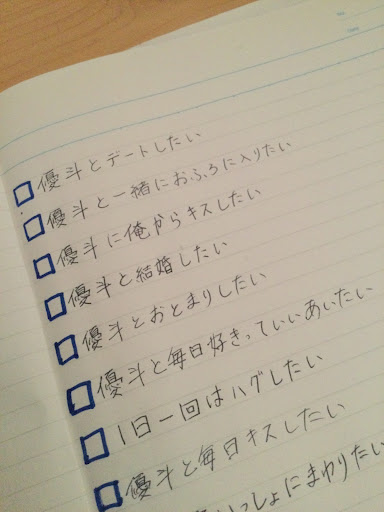 優斗とデートしたい
優斗と一緒におふろに入りたい
優斗に俺からキスしたい
優斗と結婚したい
優斗とおとまりしたい
優斗と毎日好きっていいあいたい
1日一回はハグしたい
優斗と毎日キスしたい
いっしょにまわりたい